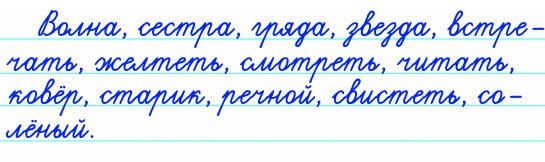 Волна, сестра, гряда, звезда, встре-
чать, желтеть, смотреть, читать,
ковёр, старик, речной, свистеть, со-
лёный.